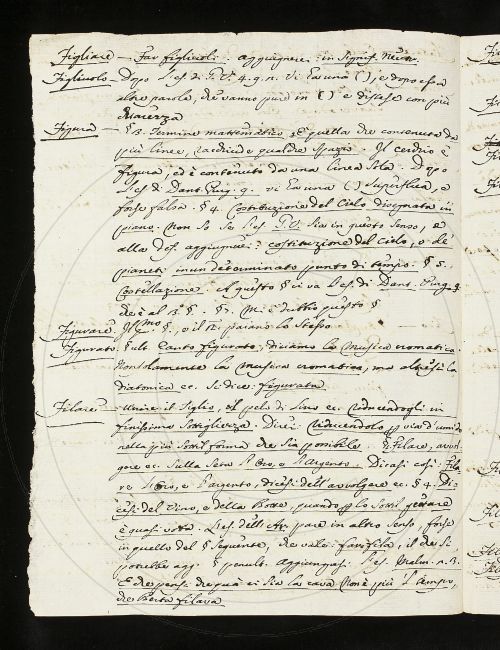 Figliare — Far figliuoli. aggiugnere: in signif. neutr.
Figliuolo — Dopo l'es. di G. V. 4. 9. n. vi è una ( ), e dopo essa
altre parole, che vanno pure in ( ) e distese con più
chiarezza
Figura — § 3. Termine mattematico, è quella che contenuta da
più linee, racchiude qualche spazio. Il cerchio è
figura, ed è contenuto da una linea sola. Dopo
l'es. di Dant. Purg. 9. vi è una ( ) superflua, e
forse falsa. § 4. Costituzione del Cielo disegnata in
piano. Non so se l'es. G. V. sia in questo senso, e
alla des. aggiugnerei: costituzione del cielo, o de'
pianeti in un determinato punto di tempo. § 5.
Costellazione. A questo § ci va l'es. di Dant. Purg. 9.
che è al 3. §. § 7. Mi è dubbio questo §
Figurare. Il §, e il 2. paiono lo stesso
Figurato § ult. Canto figurato, diciamo la musica cromatica.
Non solamente la musica cromatica, ma altresì la
diatonica ec. si dice figurata
Filare — Unire il tiglio, o il pelo di lino ec. riducendogli in
finissima sottigliezza. Direi riducendolo
nella più sottil forma che sia possibile. § Filare, avvol-
gere ec. sulla seta l'Oro, e l'Argento. Dicasi così: Fila-
re l'Oro, e l'Argento, dicesi dell'avvolgere ec. § 4. Di-
cesi del Vino, e della Botte, quando lo sottil gettare
è quasi vota. L'es. dell' pare in altro senso, forse
in quello del § seguente, che vale: far fila, il che si
potrebbe agg. § penult. Aggiungasi. l'es. Malm. 2. 3.
E che pensi che quà ci sia la cava Non è più 'l tempo,
che Berta filava.